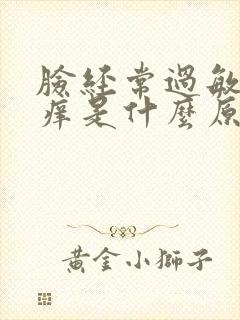 臉經常過敏
痒是什麼原
黃金小獅子